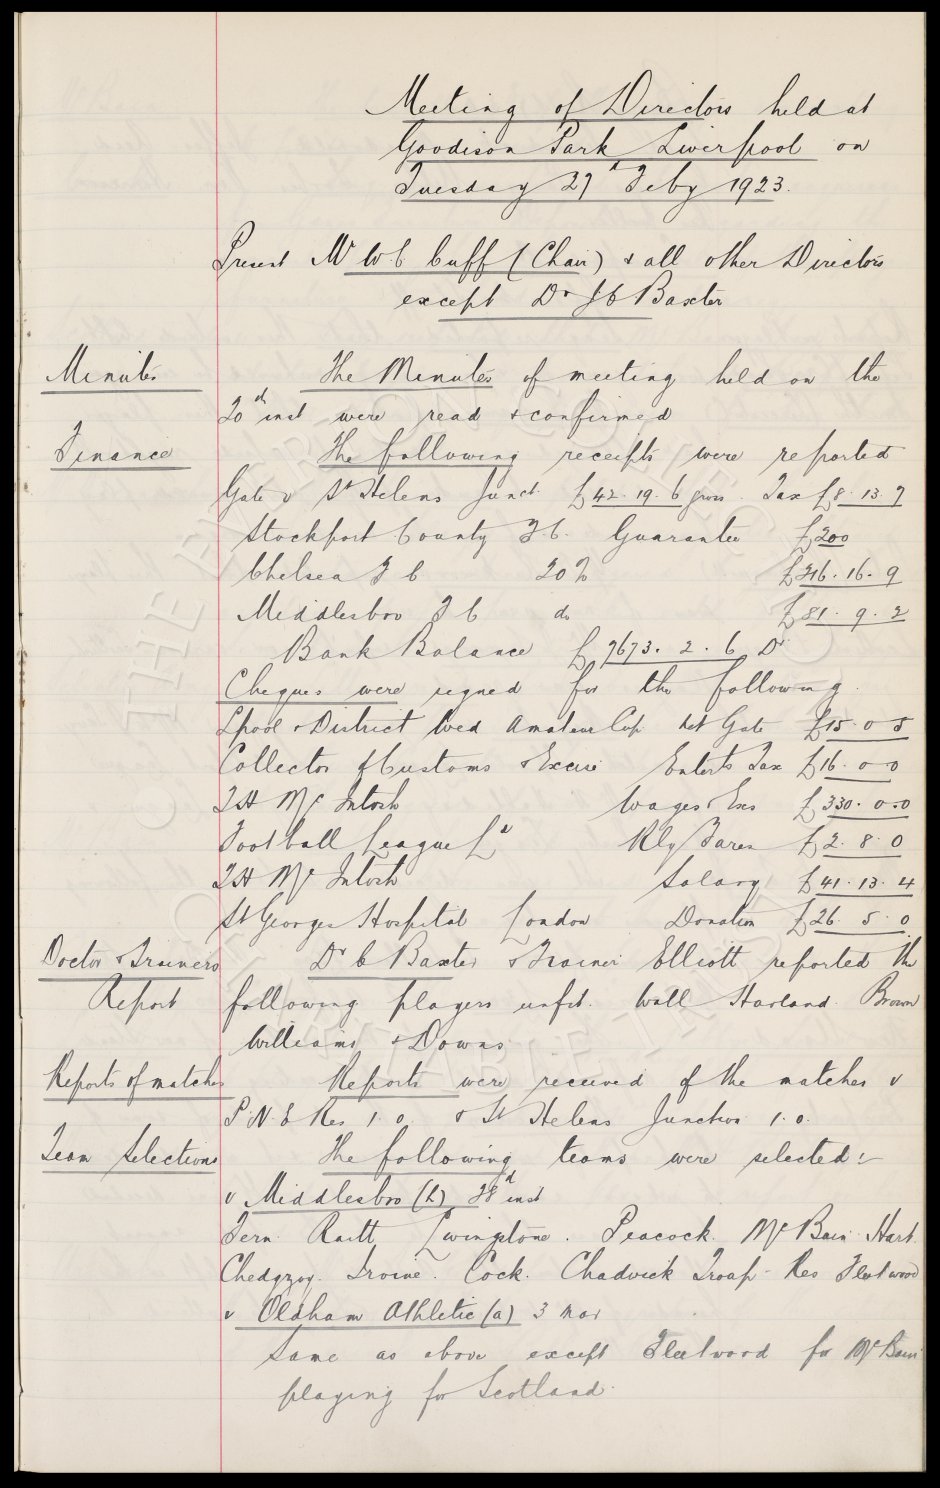 Meeting of Directors held at
Goodison Park Liverpool on
Tuesday 27th Feby 1923.
Present Mr W C Cuff (Chair) & all other Directors
except Dr J C Baxter
Minutes The Minutes of meeting held on the
20th inst were read & confirmed
Finance The following receipts were reported
Gate v St Helens Junct. £42. 19. 6 gross. Tax £8. 13. 7
Stockport County F C. Guarantee £200
Chelsea F C 20% £216. 16. 9
Middlesbro F C do £81. 9. 2
Bank Balance £7673. 2. 6 Dr
Cheques were signed for the following.
Lpool & District Wed Amateur Cup Net Gate £15. 0 5
Collector of Customs & Excise Enterts Tax £16. 0 0
T H Mc Intosh Wages & Exs £330. 0. 0
Football League Ld Rly Fares £2. 8. 0
T H Mc Intosh Salary £41. 13. 4
St Georges Hospital London Donation £26. 5. 0
Doctor & Trainers Dr C Baxter & Trainer Elliott reported the
Report following players unfit. Wall Harland. Brown
Williams & Downs
Reports of matches Reports were received of the matches v
P. N. E Res 1. 0. & St Helens Junction 1. 0.
Team Selections The following teams were selected:-
v Middlesbro (h) 28th inst
Fern Raitt Livingstone. Peacock. Mc Bain. Hart.
Chedgzoy. Irvine. Cock. Chadwick Troup - Res Fleetwood
v Oldham Athletic (a) 3 Mar
Same as above except Fleetwood for Mc Bain
playing for Scotland.
THE EVERTON